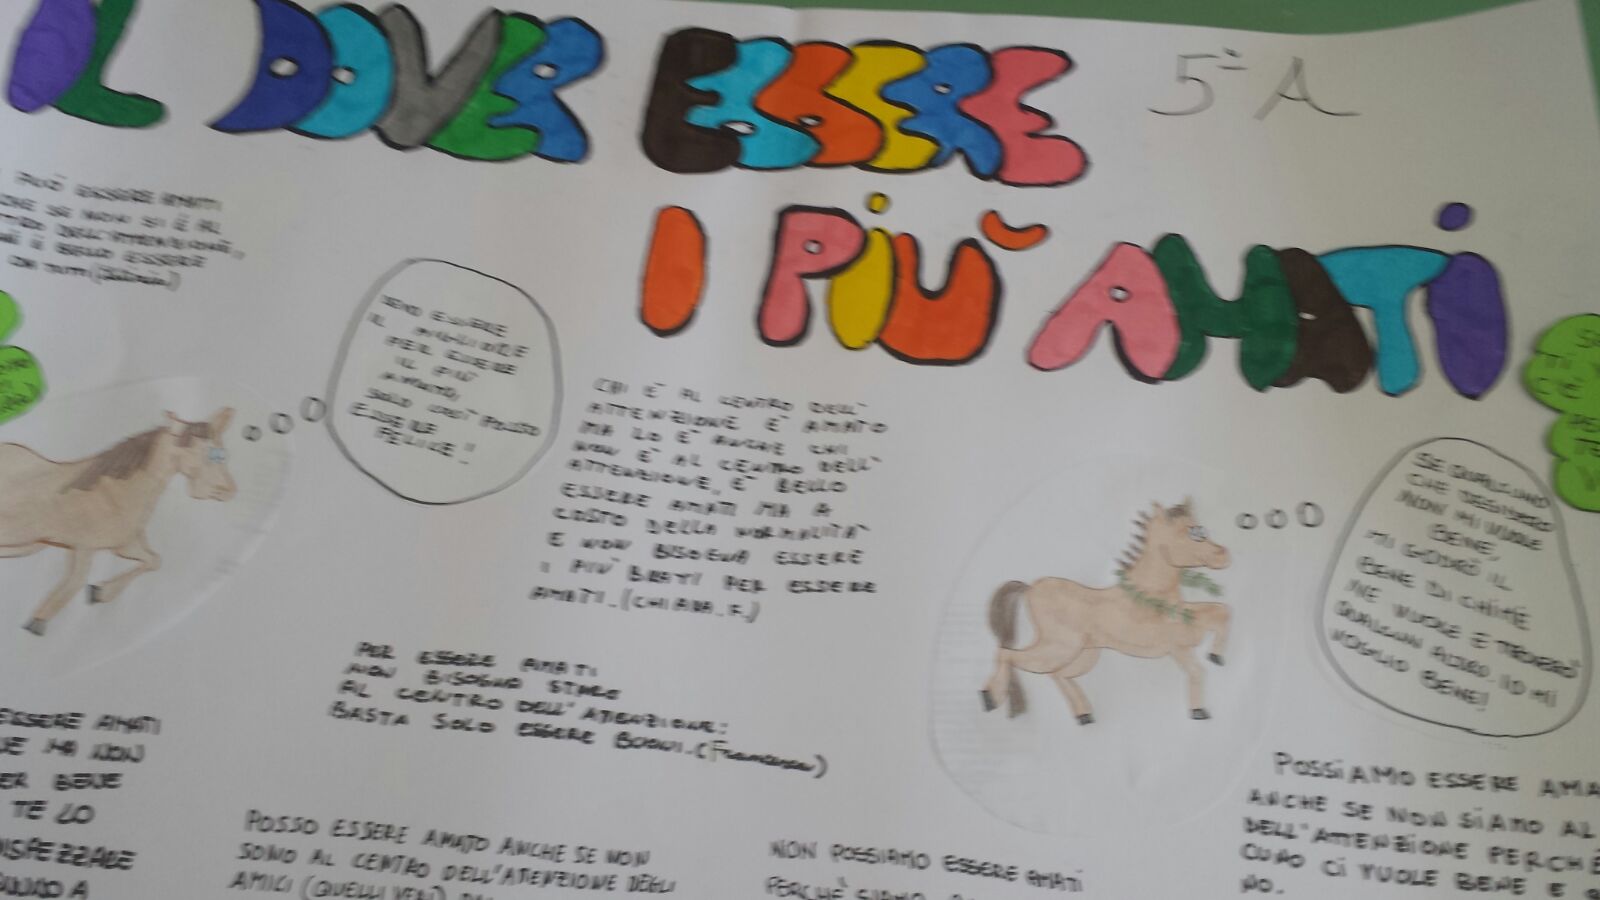 IL DOVER ESSERE
5ª A
I PIÙ AMATI
PUÒ ESSERE AMATI
CHE SE NON SI È AL
DELL'ATTENZIONE,
È BELLO ESSERE
DA TUTTI
DEVO ESSERE
IL MIGLIORE
PER ESSERE
IL PIÙ
AMATO,
SOLO COSÌ POSSO
ESSERE
FELICE!!
CHI È AL CENTRO DELL'
ATTENZIONE È AMATO
MA LO È ANCHE CHI
NON È AL CENTRO DELL'
ATTENZIONE. È BELLO
ESSERE AMATI MA A
COSTO DELLA NORMALITÀ
E NON BISOGNA ESSERE
I PIÙ BRAVI PER ESSERE
AMATI.(CHIARA.F.)
SE QUALCUNO
CHE DESIDERO
NON MI VUOLE
BENE,
MI GODRÒ IL
BENE DI CHI ME
NE VUOLE E TROVERÒ
QUALCUN ALTRO. IO MI
VOGLIO BENE!
TI
C'È
PER ESSERE AMATI
NON BISOGNA STARE
AL CENTRO DELL'ATENZIONE:
BASTA SOLO ESSERE BUONI.(Francesca)
ESSERE AMATI
MA NON
PER BENE
TE LO
A
POSSO ESSERE AMATO ANCHE SE NON
SONO AL CENTRO DELL'ATENZIONE DEGLI
AMICI (QUELLI VERI)
NON POSSIAMO ESSERE AMATI
PERCHÈ SIAMO
POSSIAMO ESSERE AMA
ANCHE SE NON SIAMO AL
DELL'ATTENZIONE PERCHÈ
CUNO CI VUOLE BENE E
NO.